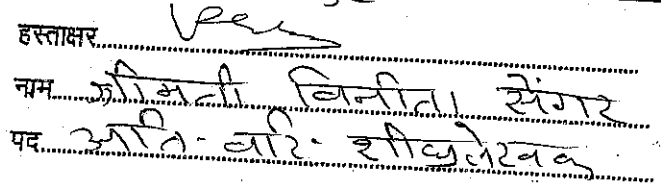 हस्ताक्षर
नाम श्रीमती विनीता सेंगर
पद अति- वरि- शीघ्रलेखक